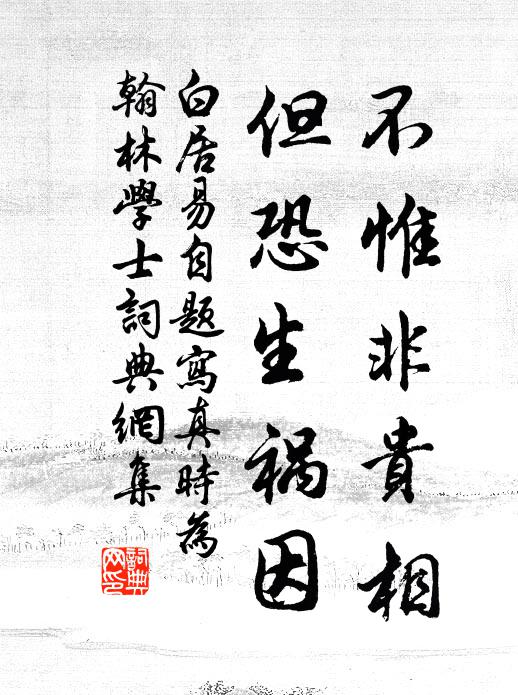 不惟非貴相
但恐生禍因
白居易自題寫真時為
翰林學士詞典網集
詞典
网印